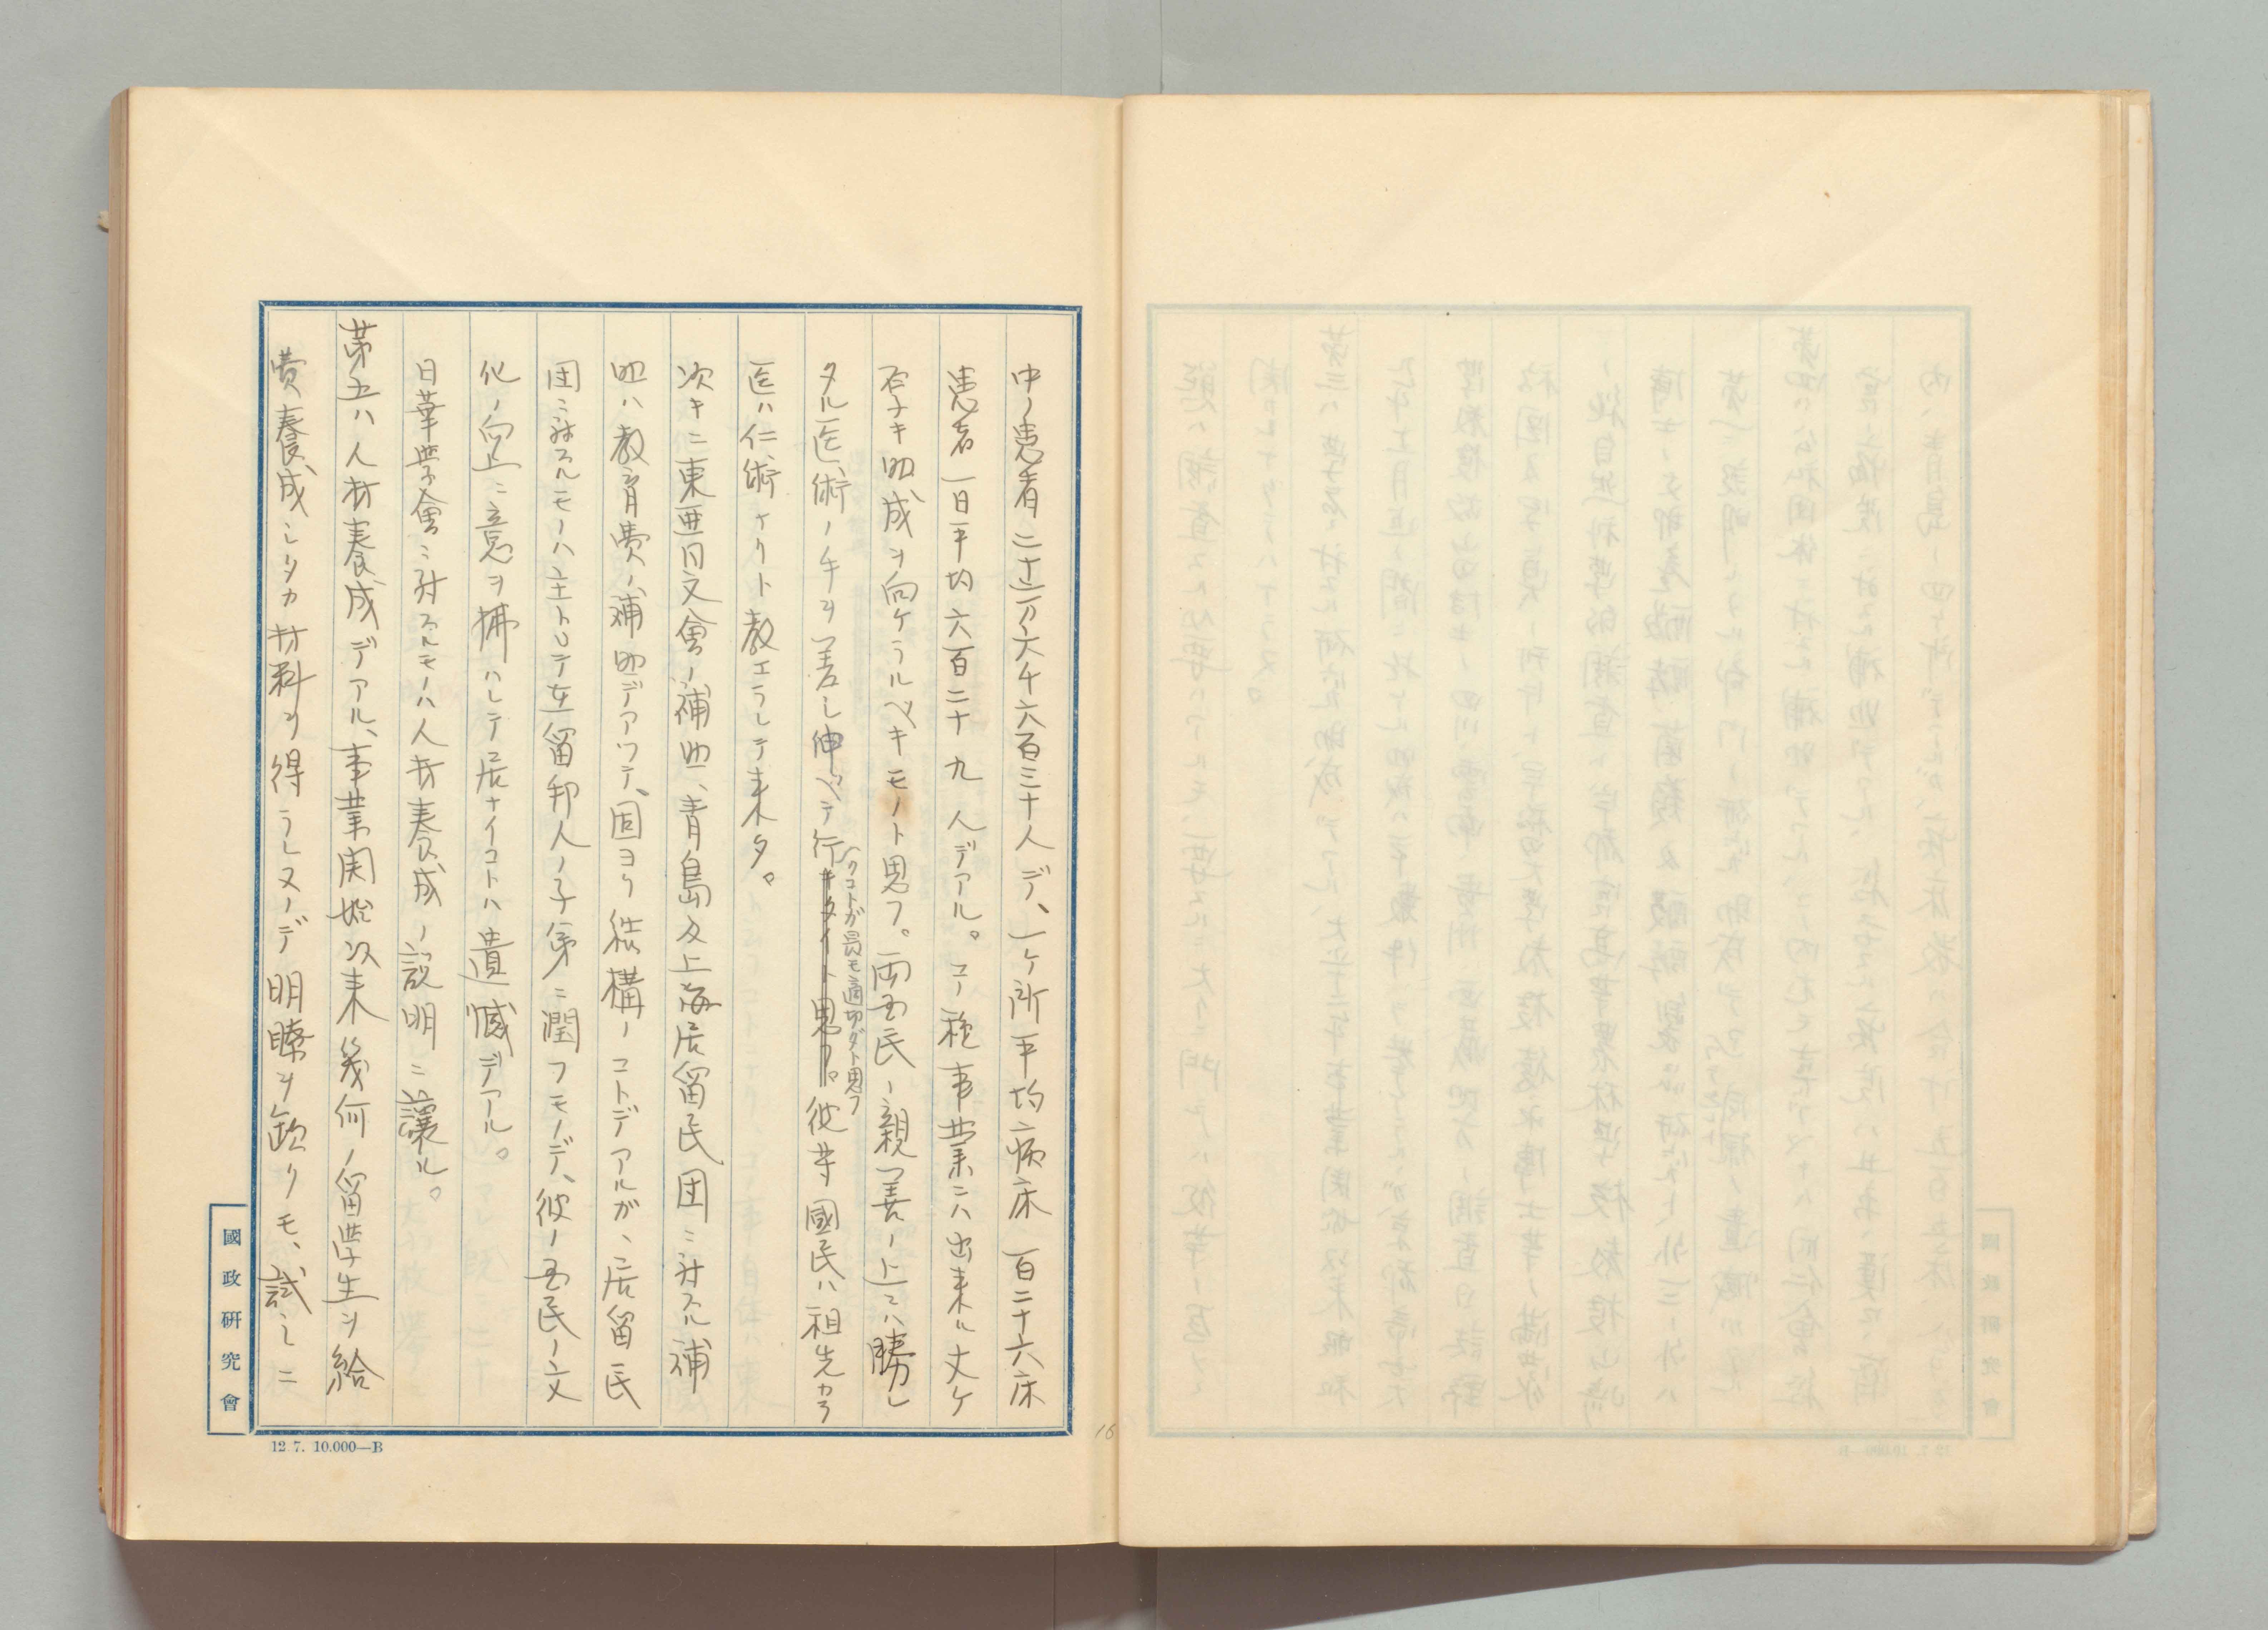 中ノ患者二十三万六千六百三十人デ、一ケ所平均病床百二十六床
患者一日平均六百二十九人デアル。コノ種事業ニハ出来ル丈ケ
助成ヲ向ケラルベキモノト思フ。両国民ノ親善ノ上ニハ勝レ
タル医術ノ手ヲ差し伸ベテ行クコトガ最モ適切ダト思フ 彼等國民ハ祖先カラ
行キタイト思フ。
医ハ仁術ナリト教エラレテ来タ。
次キニ東亜同文會ノ補助、青島及上海居留民団ニ対スル補
助ハ教育費ノ補助デアツテ、固ヨリ結構ノコトデアルガ、居留民
団ニ対スルモノハ主トシテ在留邦人ノ子弟ニ潤フモノデ、彼ノ国民ノ文
化ノ向上ニ意ヲ拂ハレテ居ナイコトハ遺憾デアル。
日華学會ニ対スルモノハ人材養成ノ説明ニ譲ル。
第五ハ人材養成デアル、事業開始以来幾何ノ留学生ヲ給
費養成シタカ材料ヲ得ラレヌノデ明瞭ヲ欠クモ、試シニ
國政研究會
12 7. 10.000—B
16